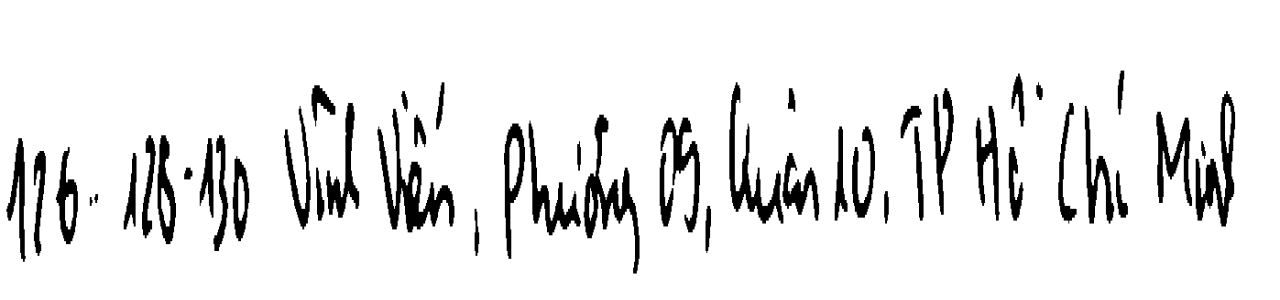 126-128-130 Vĩnh Viễn, Phường 09, Quận 10, TP Hồ Chí Minh